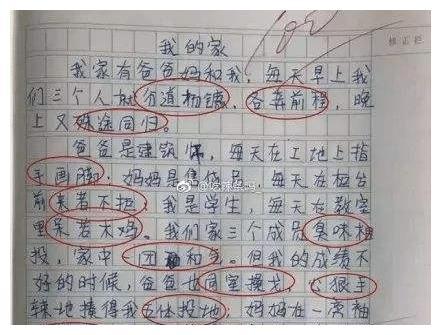 我的家
修正栏
我家有爸爸妈和我，每天早上我
们三个人就分道扬镳，各奔前程，晚
上又殊途同归。
爸爸是建筑师，每天在工地上指
手画脚；妈妈是售货员，每天在柜台
前来者不拒；我是学生，每天在教室
里呆若木鸡。我们家三个成员臭味相
投，家中一团和气。但我的成绩不
好的时候，爸爸也同室操戈，心狠手
辣地揍得我五体投地；妈妈在一旁袖